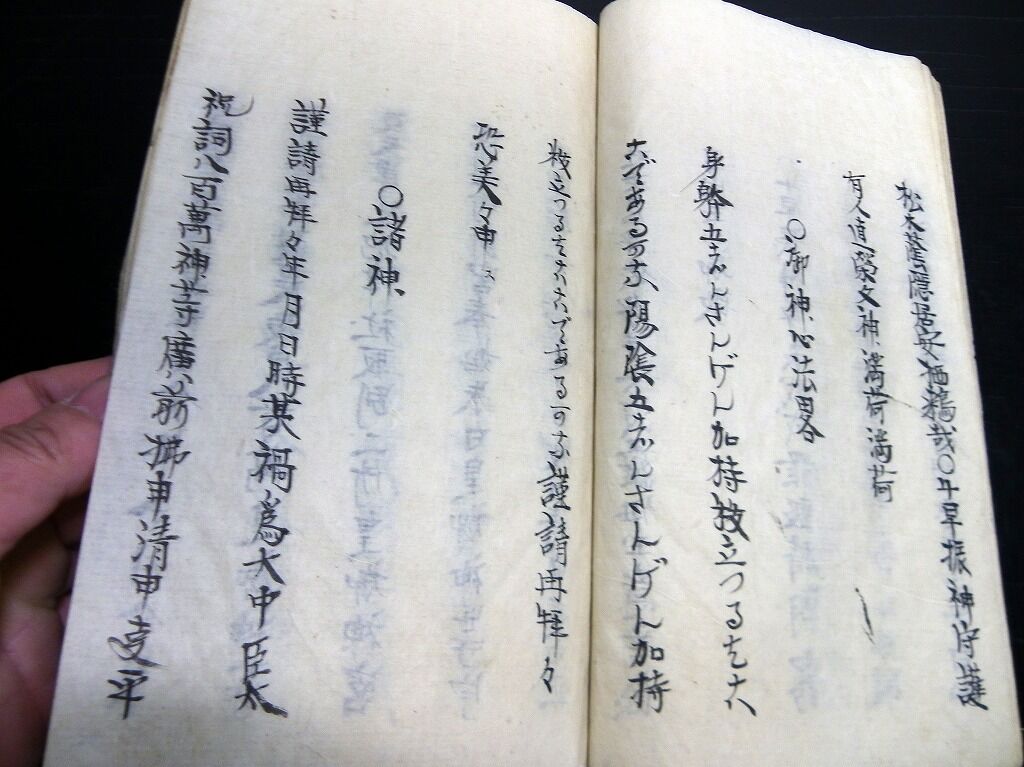 松木蔭隠居安栖鵜哉〇千早振神守護
有人直榮文神満荷満荷
〇御神心法畧
身躰五志んさんげん加持技立つるを六
六である可な陽陰五志んさんげん加持
技立つるを六六である可な謹請再拜々
恐美々申
〇諸神
謹請再拜々年月日時某禍爲大中臣太
祝詞八百萬神等廣前拂申清申支平